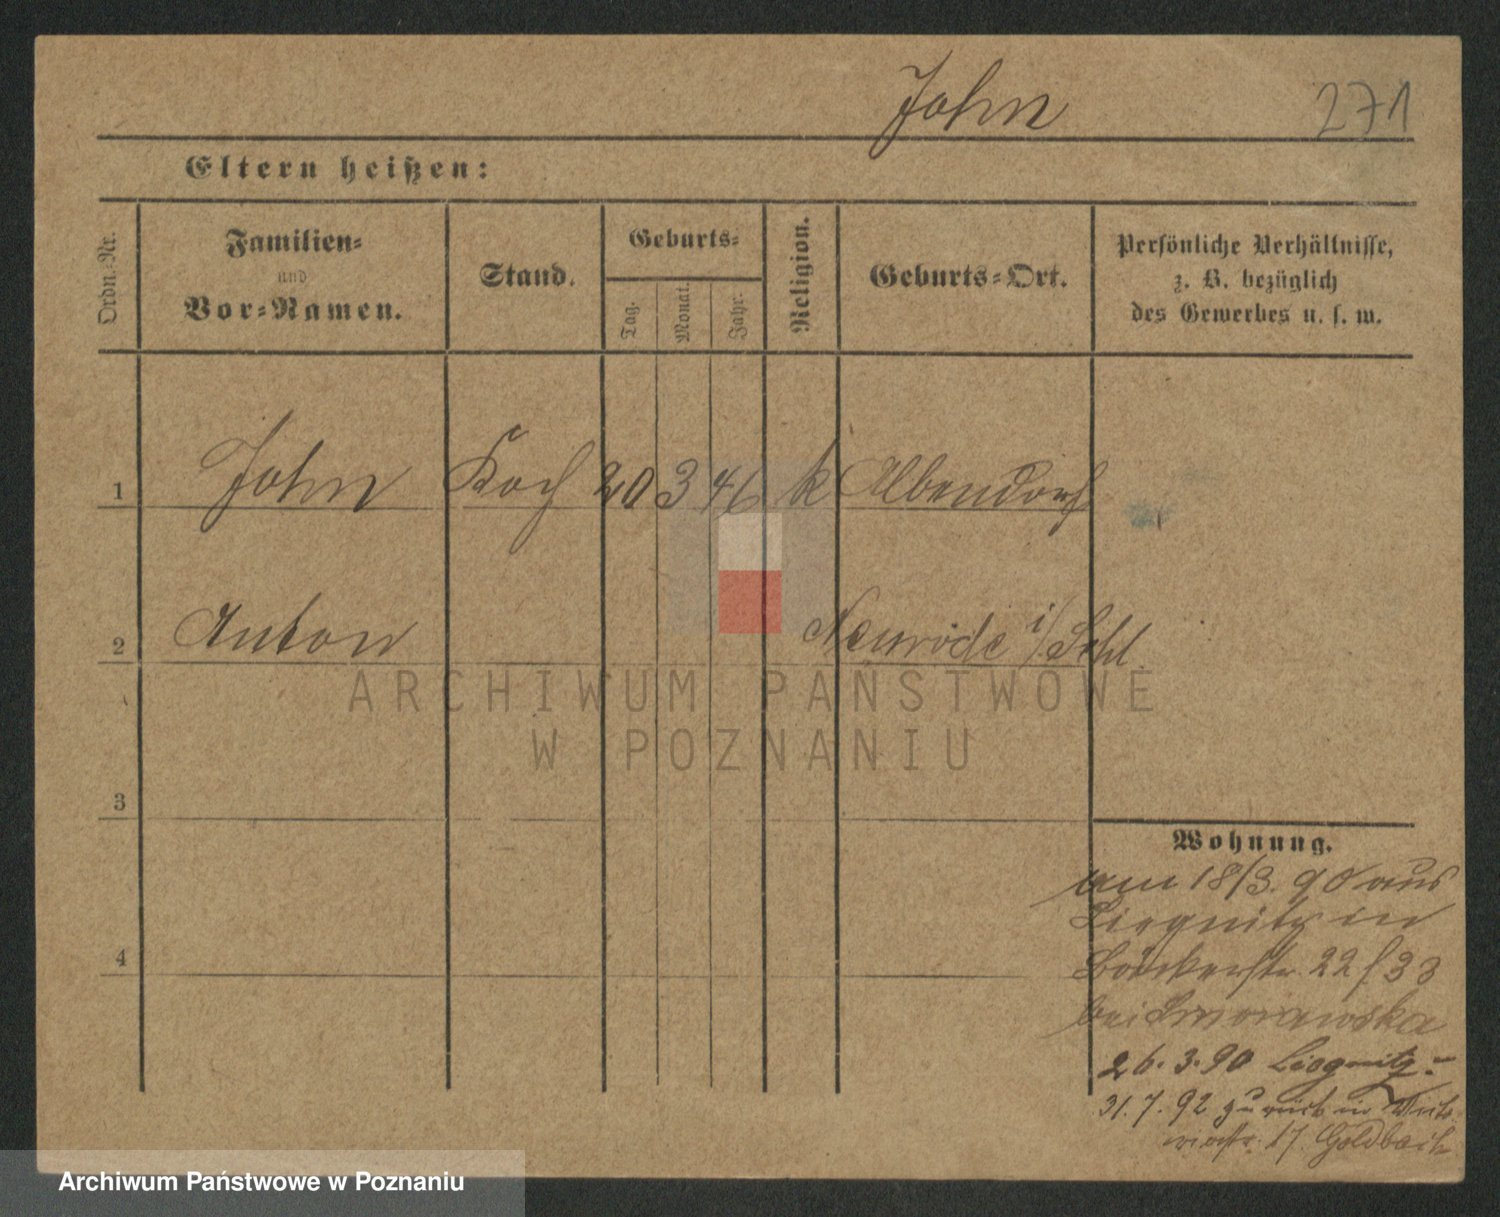 John 271
Eltern heißen:
Ordn.-Nr. Familien- und Vor-Namen. Stand. Geburts- Tag. Monat. Jahr. Religion. Geburts-Ort. Persönliche Verhältnisse, z. B. bezüglich des Gewerbes u. s. w.
1 John Koch 20 3 46 k Albendorf
2 Anton Neurode i/Schl.
ARCHIWUM PAŃSTWOWE
W POZNANIU
3
Wohnung.
am 18/3. 90 aus
Liegnitz in
4
22 33
bei
26. 3. 90 Liegnitz
31. 7. 92 zurück in
17. Goldbach
Archiwum Państwowe w Poznaniu